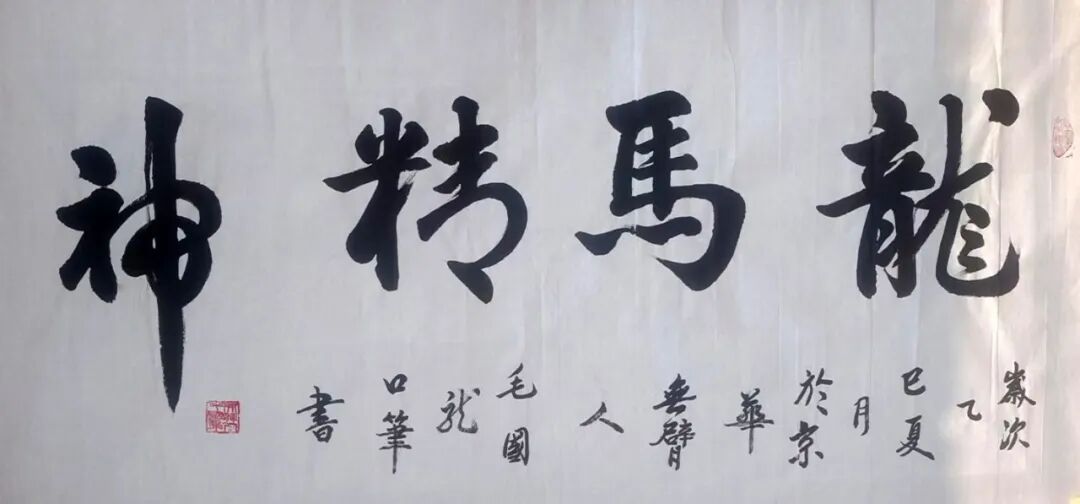 龍馬精神
歲次
乙
巳夏
月
於京
華
無臂
人
毛國
龍
口筆
書